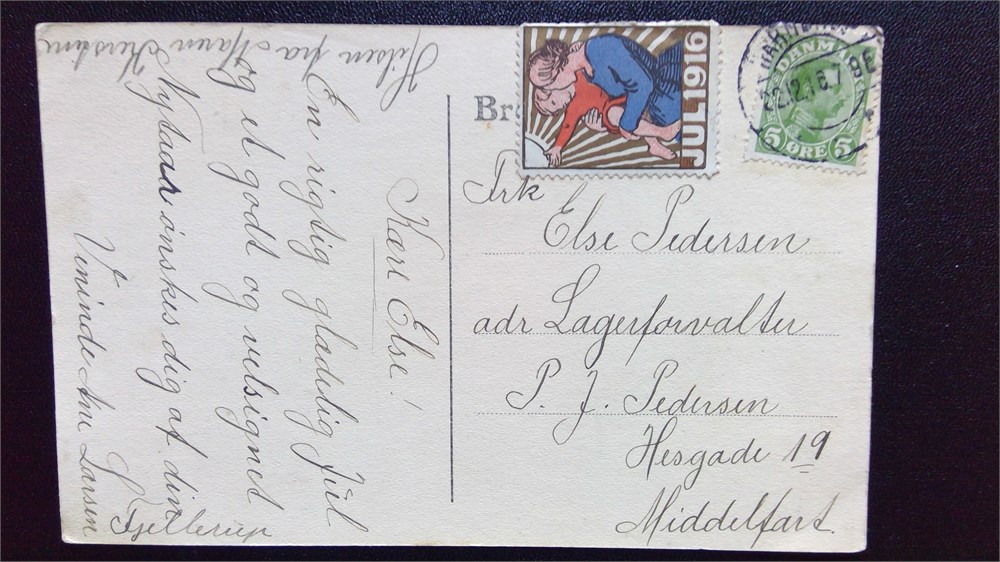 Kære Else!
En rigtig glædelig Jul
og et godt og velsignet
Nytaar ønskes dig af din
Veninde Ane Larsen
Fjellerup
Hilsen fra Maren Kirstine
JUL 1916
DANMARK
5 ØRE 5
22.12.16.7
Br
Frk
Else Pedersen
adr Lagerforvalter
P. J. Pedersen
Hesgade 19
Middelfart.